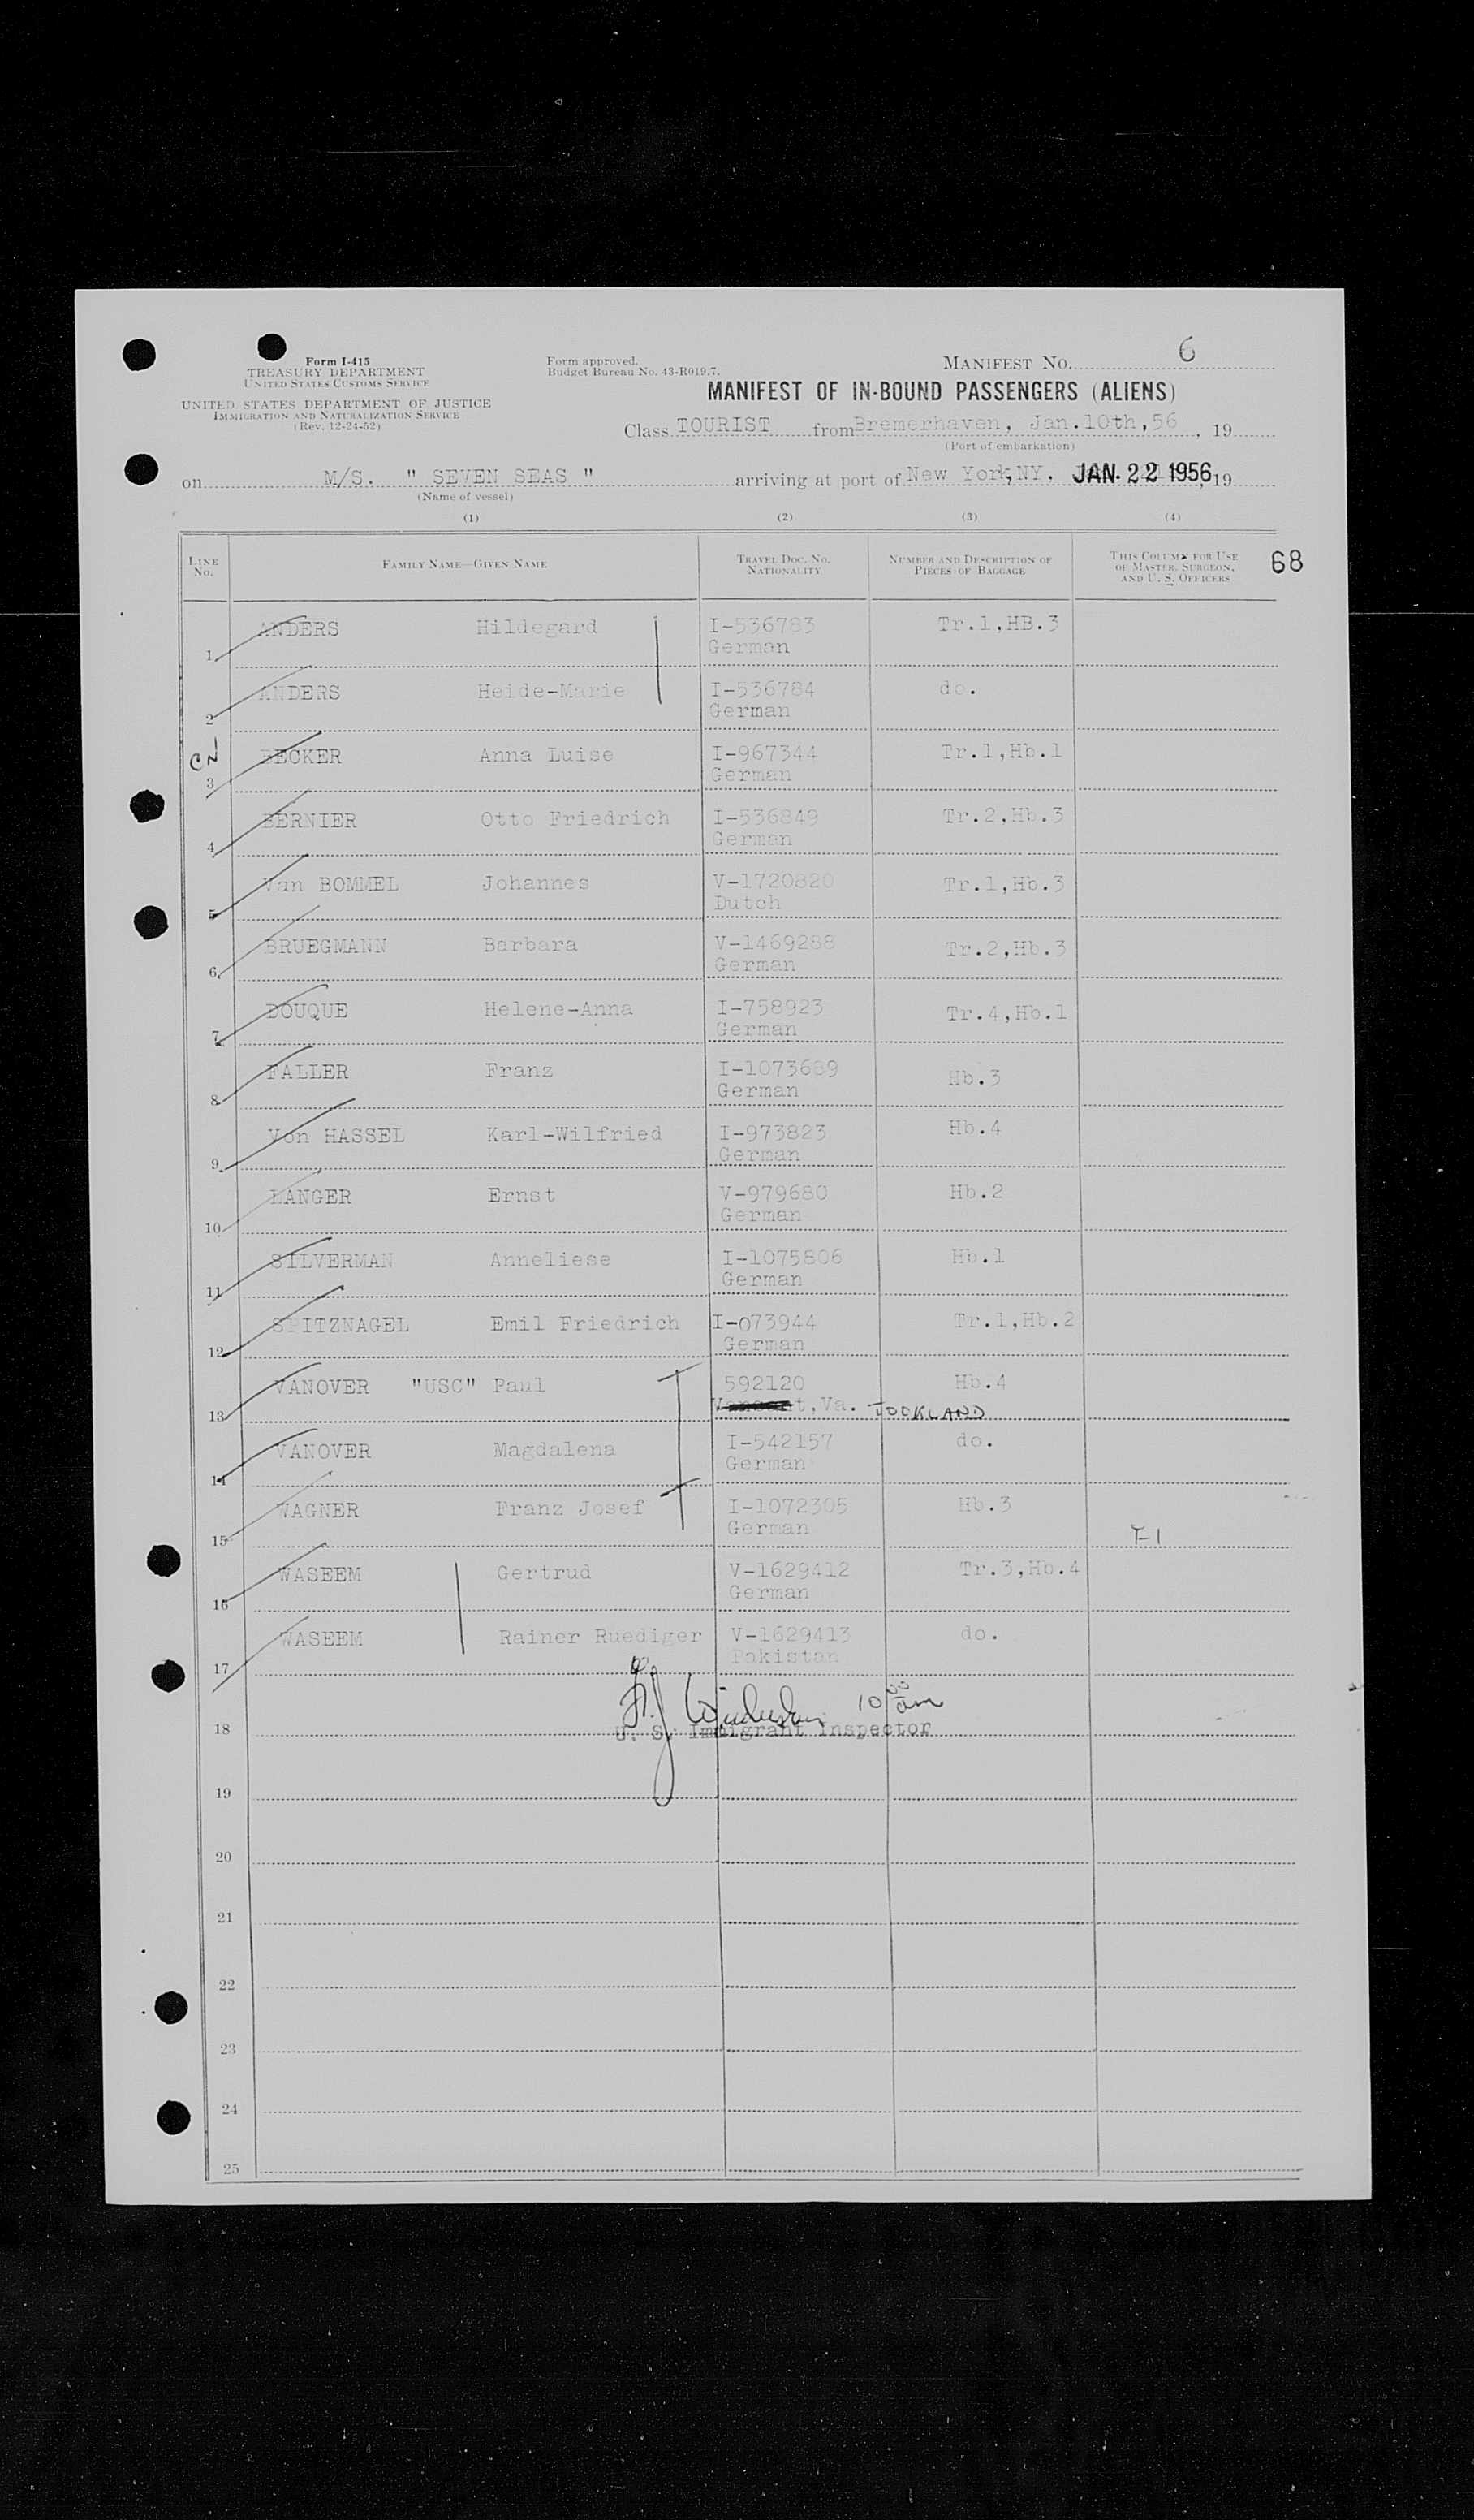 Form I-415
TREASURY DEPARTMENT
UNITED STATES CUSTOMS SERVICE
UNITED STATES DEPARTMENT OF JUSTICE
IMMIGRATION AND NATURALIZATION SERVICE
(Rev. 12-24-52)
Form approved.
Budget Bureau No. 43-R019.7.
MANIFEST NO. 6
MANIFEST OF IN-BOUND PASSENGERS (ALIENS)
Class TOURIST from Bremerhaven, Jan.10th,56, 19
(Port of embarkation)
on M/S. " SEVEN SEAS " arriving at port of New York,NY. JAN. 22 1956, 19
(Name of vessel)
(1) (2) (3) (4)
LINE NO. FAMILY NAME—GIVEN NAME TRAVEL DOC. NO. NATIONALITY NUMBER AND DESCRIPTION OF PIECES OF BAGGAGE THIS COLUMN FOR USE OF MASTER, SURGEON, AND U. S. OFFICERS 68
1 ANDERS Hildegard I-536783 Tr.1,HB.3
German
2 ANDERS Heide-Marie I-536784 do.
German
3 BECKER Anna Luise I-967344 Tr.1,Hb.1
German
4 BERNIER Otto Friedrich I-536849 Tr.2,Hb.3
German
5 Van BOMMEL Johannes V-1720820 Tr.1,Hb.3
Dutch
6 BRUEGMANN Barbara V-1469288 Tr.2,Hb.3
German
7 DOUQUE Helene-Anna I-758923 Tr.4,Hb.1
German
8 FALLER Franz I-1073689 Hb.3
German
9 Von HASSEL Karl-Wilfried I-973823 Hb.4
German
10 LANGER Ernst V-979680 Hb.2
German
11 SILVERMAN Anneliese I-1075806 Hb.1
German
12 SPITZNAGEL Emil Friedrich I-073944 Tr.1,Hb.2
German
13 VANOVER "USC" Paul 592120 Hb.4
Va. JOOKLAND
14 VANOVER Magdalena I-542157 do.
German
15 WAGNER Franz Josef I-1072305 Hb.3
German
16 WASEEM Gertrud V-1629412 Tr.3,Hb.4
German
17 WASEEM Rainer Ruediger V-1629413 do.
Pakistan
10 00 am
18 U. S. Immigrant Inspector
19
20
21
22
23
24
25